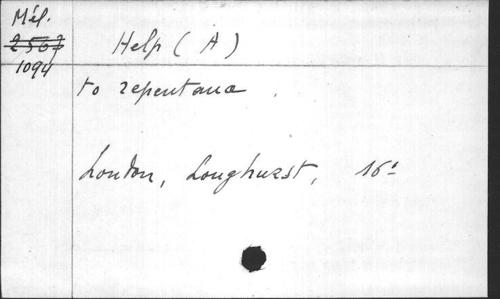 Mél.
2567
1094
Help (A)
to repentance
London, Longhurst, 16°